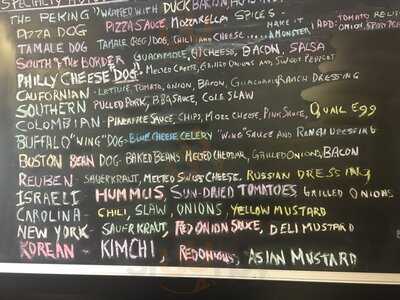 SPECIALTY
THE PEKING "WRAPPED WITH DUCK BACON,
PIZZA DOG PIZZA SAUCE, MOZZARELLA SPICES -
TAMALE DOG TAMALE (REG) DOG, CHILI AND CHEESE.... MAKE IT A MONSTER ADD: TOMATO RELISH
SOUTH OF THE BORDER GUACAMOLE, CHEESE, BACON, SALSA
PHILLY CHEESE DOG - MELTED CHEESE, GRILLED ONIONS AND SWEET PEPPERS
CALIFORNIAN - LETTUCE, TOMATO, ONION, BACON, GUACAMOLE, RANCH DRESSING
SOUTHERN PULLED PORK, BBQ SAUCE, COLE SLAW
COLOMBIAN - PINEAPPLE SAUCE, CHIPS, MOZZ. CHEESE, PINK SAUCE, QUAIL EGG
BUFFALO "WING" DOG - BLUE CHEESE CELERY "WING" SAUCE AND RANCH DRESSING
BOSTON BEAN DOG - BAKED BEANS MELTED CHEDDAR, GRILLED ONIONS, BACON
REUBEN - SAUERKRAUT, MELTED SWISS CHEESE, RUSSIAN DRESSING
ISRAELI HUMMUS, SUN-DRIED TOMATOES GRILLED ONIONS
CAROLINA - CHILI, SLAW, ONIONS, YELLOW MUSTARD
NEW YORK - SAUERKRAUT, RED ONION SAUCE, DELI MUSTARD
KOREAN - KIMCHI, RED ONIONS, ASIAN MUSTARD